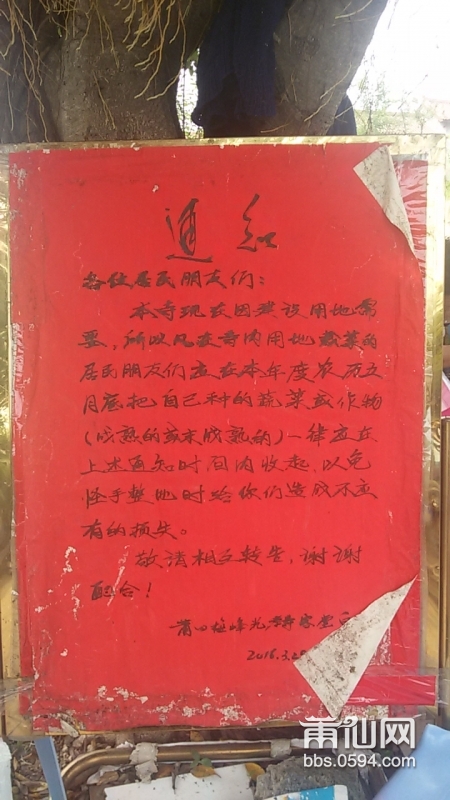 通知
各位居民朋友们：
本寺现在因建设用地需
要，所以凡在寺内用地栽菜的
居民朋友们应在本年度农历五
月底把自己种的蔬菜或作物
(成熟的或未成熟的)一律应在
上述通知时间内收起，以免
怪手整地时给你们造成不应
有的损失。
敬请相互转告，谢谢
配合！
莆田梅峰光
2016.3.2
莆仙网
bbs.0594.com